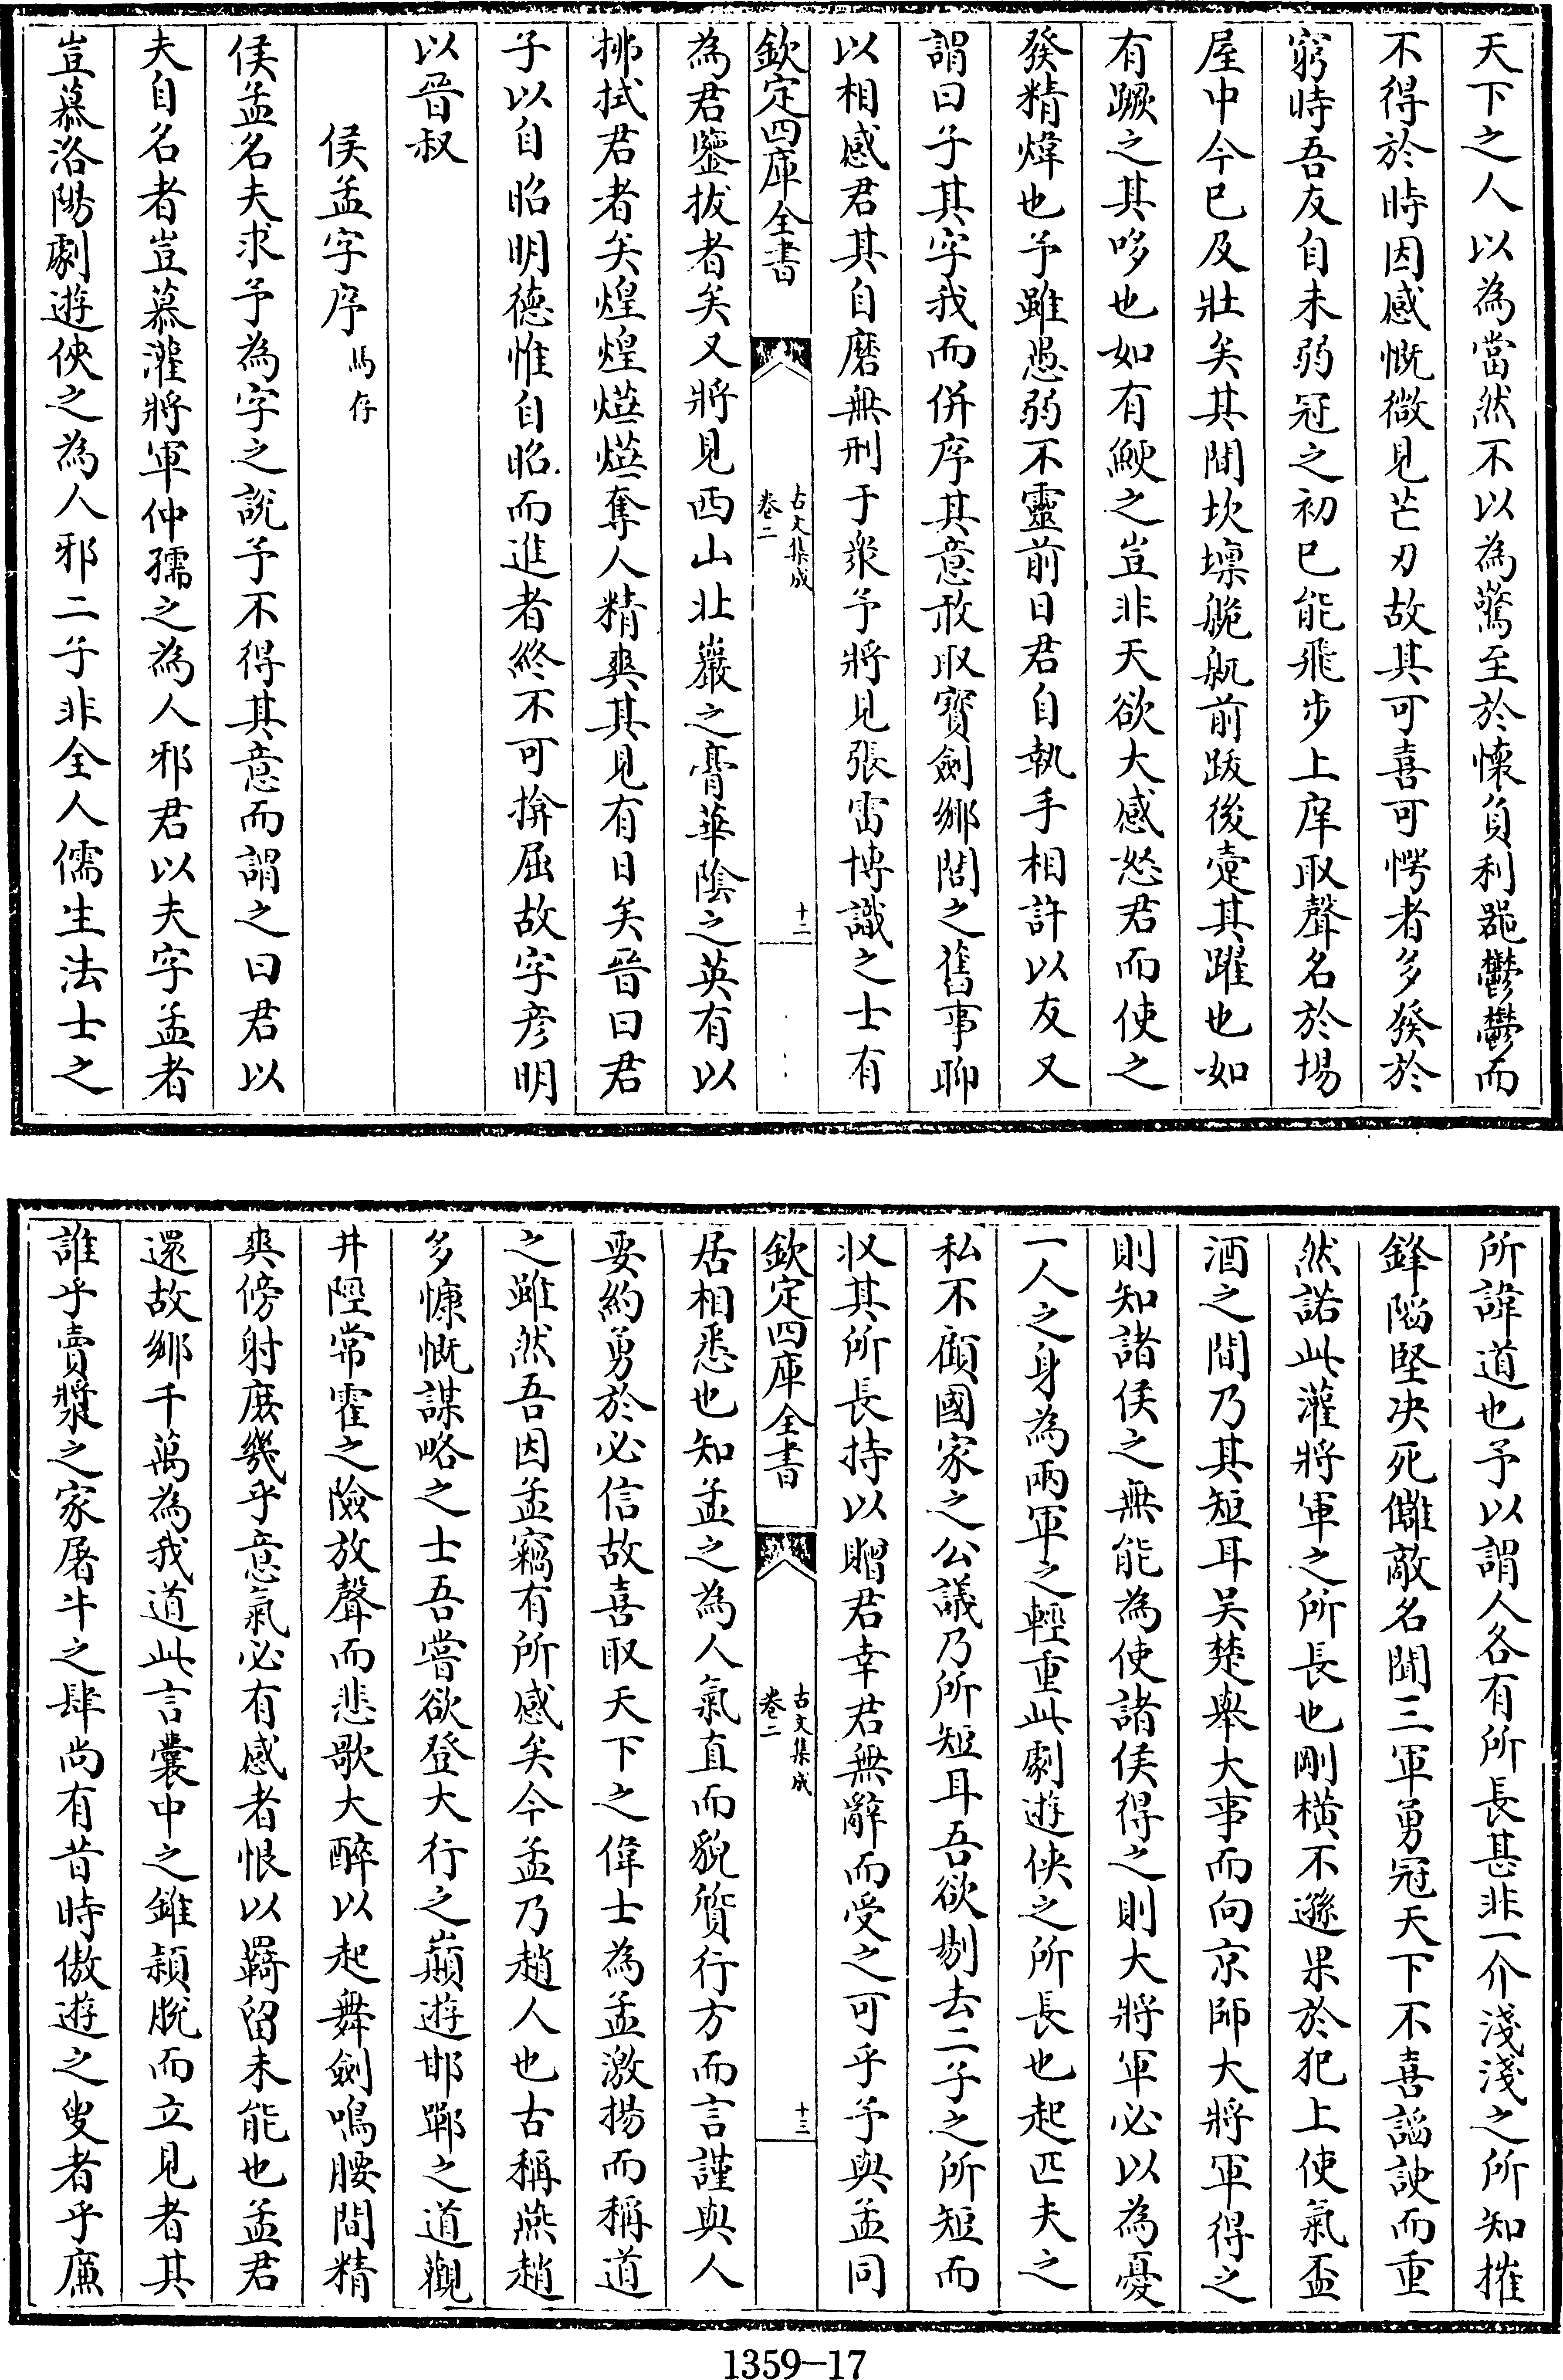 天下之人以為當然不以為驚至於懷負利器鬱鬱而
不得於時因感慨微見芒刃故其可喜可愕者多發於
窮時吾友自未弱冠之初已能飛步上庠取聲名於場
屋中今已及壯矣其間坎壈齕前跋後疐其躍也如
有蹶之其哆也如有鯁之豈非天欲大感怒君而使之
發精煒也予雖愚弱不靈前日君自執手相許以友又
謂曰子其字我而併序其意敢取寳劍鄉閭之舊事聊
以相感君其自磨無刑于衆予將見張雷博識之士有
欽定四庫全書
古文集成
卷二
十二
為君鑒拔者矣又將見西山北巖之膏華陰之英有以
拂拭君者矣煌煌㷼㷼奪人精爽其見有日矣晉曰君
子以自昭明德惟自昭而進者終不可揜屈故字彥明
以晉叔
侯孟字序 馬存
侯孟名夫求予為字之說予不得其意而謂之曰君以
夫自名者豈慕灌將軍仲孺之為人邪君以夫字孟者
豈慕洛陽劇遊俠之為人邪二子非全人儒生法士之
所諱道也予以謂人各有所長甚非一介淺淺之所知摧
鋒陷堅决死讎敵名聞三軍勇冠天下不喜謟諛而重
然諾此灌將軍之所長也剛橫不遜果於犯上使氣盃
酒之間乃其短耳吴楚舉大事而向京師大將軍得之
則知諸侯之無能為使諸侯得之則大將軍必以為憂
一人之身為兩軍之輕重此劇遊俠之所長也起匹夫之
私不顧國家之公議乃所短耳吾欲剔去二子之所短而
収其所長持以贈君幸君無辭而受之可乎予與孟同
欽定四庫全書
古文集成
卷二
十三
居相悉也知孟之為人氣直而貌質行方而言謹與人
要約勇於必信故喜取天下之偉士為孟激揚而稱道
之雖然吾因孟竊有所感矣今孟乃趙人也古稱燕趙
多慷慨謀略之士吾嘗欲登大行之巔遊邯鄲之道觀
井陘常霍之險放聲而悲歌大醉以起舞劍鳴腰間精
爽傍射庶幾乎意氣必有感者恨以羇留未能也孟君
還故鄉千萬為我道此言囊中之錐頴脫而立見者其
誰乎賣漿之家屠牛之肆尚有昔時傲遊之叟者乎廉
1359-17